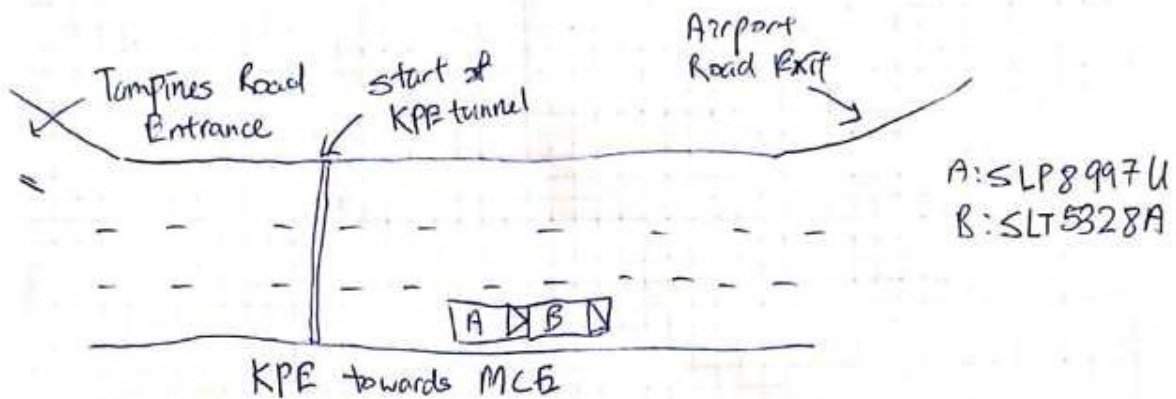 Tampines Road
Entrance
start of
KPE tunnel
Airport
Road Exit
A:SLP8997U
B:SLT5328A
A
B
KPE towards MCE